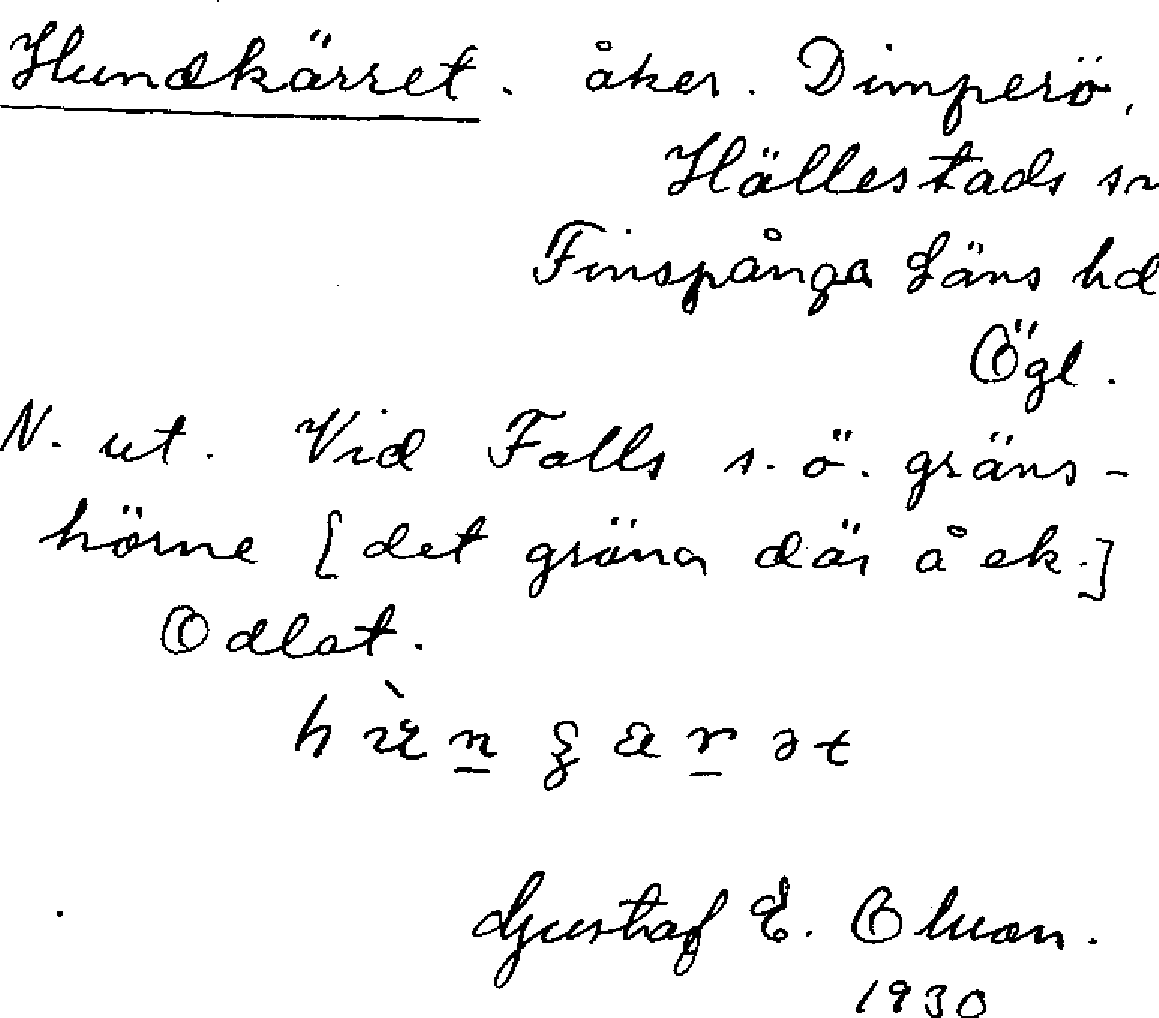 Hundkärret. åker. Dimperö,
Hällestads sn
Finspånga Läns hd
Ögl.
N. ut. Vid Falls s. ö. gräns-
hörne [det gröna där å ek.]
Odlat.
1930
Gustaf E.